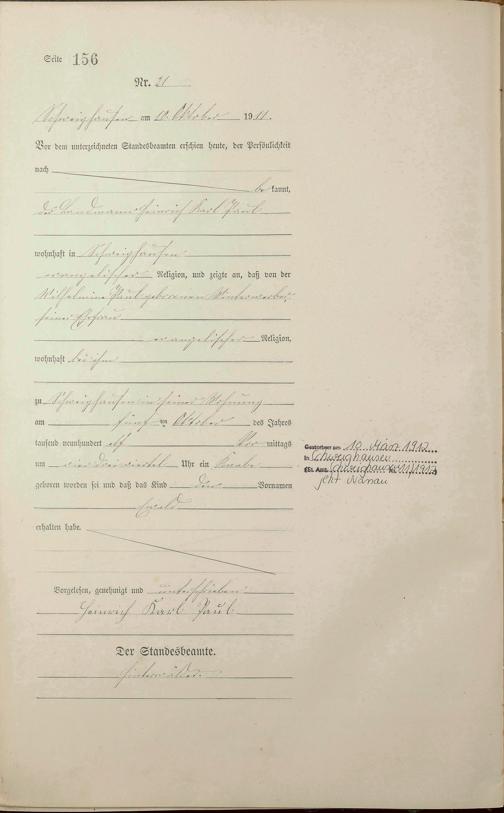 Seite 156
Nr. 21
Schweighausen am 10. Oktober 1911.
Vor dem unterzeichneten Standesbeamten erschien heute, der Persönlichkeit
nach
be kannt,
der Landmann Heinrich Karl Paul
wohnhaft in Schweighausen
evangelischer Religion, und zeigte an, daß von der
Wilhelmine Paul geborenen Winterwerber,
seiner Ehefrau
evangelischer Religion,
wohnhaft bei ihm
zu Schweighausen in seiner Wohnung
am fünften Oktober des Jahres
tausend neunhundert elf Vor mittags
um vier dreiviertel Uhr ein Knabe
geboren worden sei und daß das Kind den Vornamen
Ewald
erhalten habe.
Vorgelesen, genehmigt und unterschrieben
Heinrich Karl Paul
Der Standesbeamte.
Gestorben am 10. März 1912
in Schweighausen
(St. Amt Schweighausen 1/1912)
jetzt Nassau